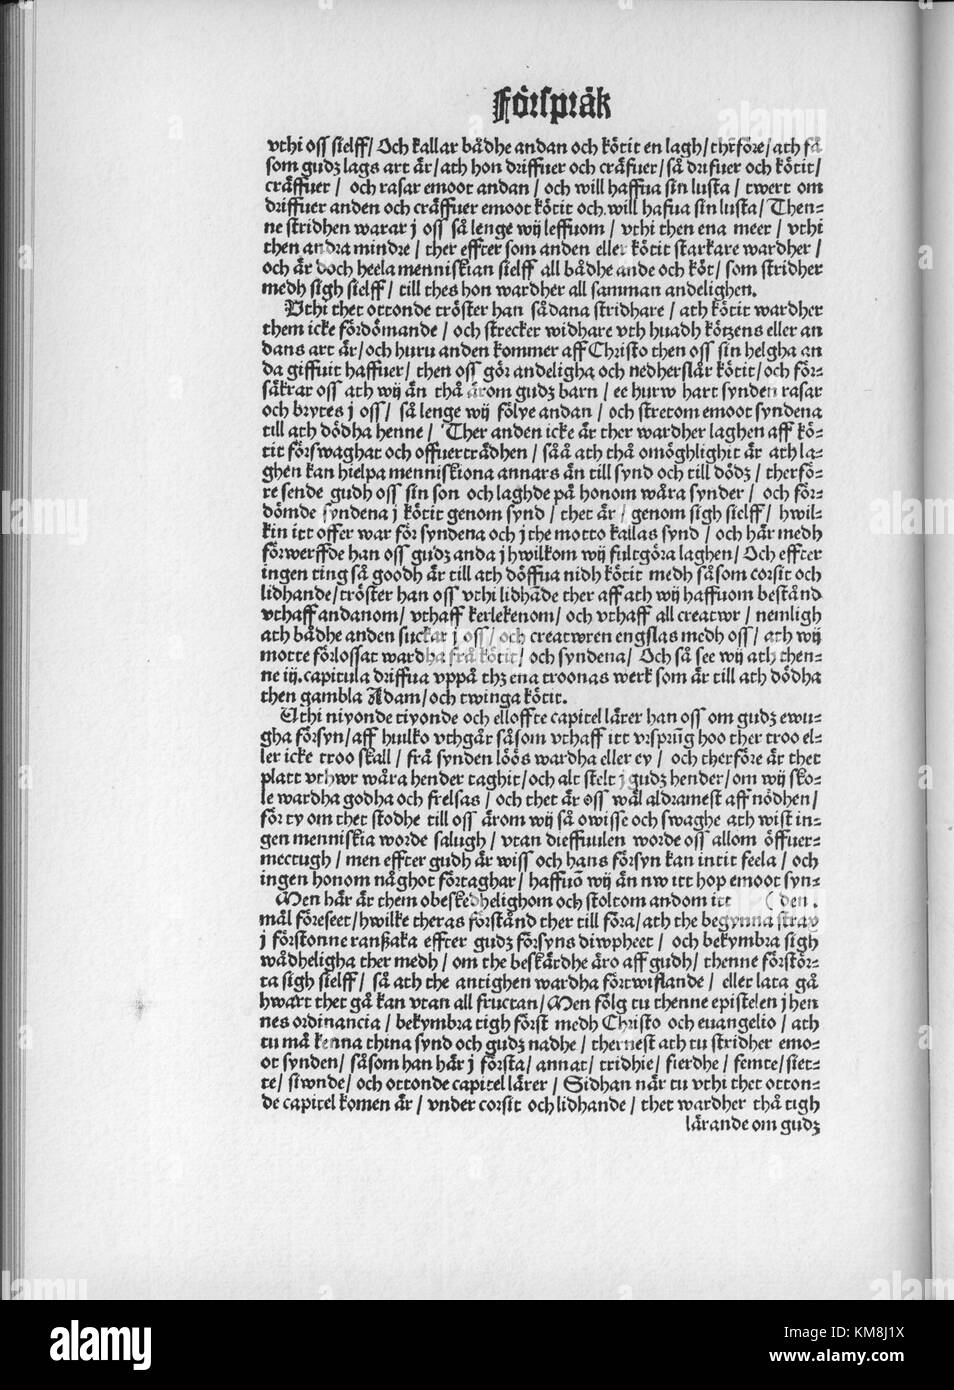 Förspråk
vthi oss sielff/ Och kallar bådhe andan och kötit en lagh/ therföre/ ath så
som gudz lags art är/ ath hon driffuer och cräfuer/ så drifuer och kötit/
cräffuer/ och rasar emoot andan/ och will haffua sin lusta/ twert om
driffuer anden och cräffuer emoot kötit och will hafua sin lusta/ Then-
ne stridhen warar j oss så lenge wij leffuom/ vthi then ena meer/ vthi
then andra mindre/ ther effter som anden eller kötit starkare wardher/
och är doch heela menniskian sielff all bådhe ande och köt/ som stridher
medh sigh sielff/ till thes hon wardher all samman andelighen.
Vthi thet ottonde tröster han sådana stridhare/ ath kötit wardher
them icke fördömande/ och strecker widhare vth huadh kötzens eller an
dans art är/ och huru anden kommer aff Christo then oss sin helgha an
da giffuit haffuer/ then oss gör andeligha och nedherslår kötit/ och för-
säkrar oss ath wij än thå ärom gudz barn/ ee hurw hart synden rasar
och brytes j oss/ så lenge wij fölye andan/ och stretom emoot syndena
till ath dödha henne/ Ther anden icke är ther wardher laghen aff kö-
tit förswaghat och offuerträdhen/ såå ath thå omöghlighit är ath la-
ghen kan hielpa menniskiona annars än till synd och till dödz/ therfö-
re sende gudh oss sin son och laghde på honom wåra synder/ och för-
dömde syndena j kötit genom synd/ thet är/ genom sigh sielff/ hwil-
kin itt offer war för syndena och j the motto kallas synd/ och här medh
förwerffde han oss gudz anda j hwilkom wij fultgöra laghen/ Och effter
ingen ting så goodh är till ath döffua nidh kötit medh såsom corsit och
lidhande/ tröster han oss vthi lidhåde ther aff ath wij haffuom bestånd
vthaff andanom/ vthaff kerlekenom/ och vthaff all creatwr/ nemligh
ath bådhe anden suckar j oss/ och creatwren engslas medh oss/ ath wij
motte förlossat wardha frå kötit/ och syndena/ Och så see wij ath then-
ne iij. capitula driffua vppå thz ena troonas werk som är till ath dödha
then gambla Adam/ och twinga kötit.
Vthi niyonde tiyonde och elloffte capitel lärer han oss om gudz ewu-
gha försyn/ aff huilko vthgår såsom vthaff itt vrsprūg hoo ther troo el-
ler icke troo skall/ frå synden löös wardha eller ey/ och therföre är thet
platt vthwr wåra hender taghit/ och alt stelt j gudz hender/ om wij sko-
le wardha godha och frelsas/ och thet är oss wäl aldramest aff nödhen/
för ty om thet stodhe till oss ärom wij så owisse och swaghe ath wist in-
gen menniskia worde salugh/ vtan dieffwulen worde oss allom öffuer-
mectugh/ men effter gudh är wiss och hans försyn kan intit feela/ och
ingen honom någhot förtaghar/ haffuō wij än nw itt hop emoot syn-
Men här är them obeskedhelighom och stoltom andom itt (den.
mål föreseet/ hwilke theras förstånd ther till föra/ ath the begynna strax
j förstonne ranßaka effter gudz försyns diwpheet/ och bekymbra sigh
wådheligha ther medh/ om the beskärdhe äro aff gudh/ thenne förstör-
ta sigh sielff/ så ath the antighen wardha förtwiflande/ eller lata gå
hwart thet gå kan vtan all fructan/ Men fölg tu thenne epistelen j hen
nes ordinancia/ bekymbra tigh först medh Christo och euangelio/ ath
tu må kenna thina synd och gudz nadhe/ thernest ath tu stridher emo-
ot synden/ såsom han här j första/ annat/ tridhie/ fierdhe/ femte/ siet-
te/ siwnde/ och ottonde capitel lärer/ Sidhan när tu vthi thet otton-
de capitel komen är/ vnder corsit och lidhande/ thet wardher thå tigh
lärande om gudz
alamy
Image ID: KM8J1X
www.alamy.com